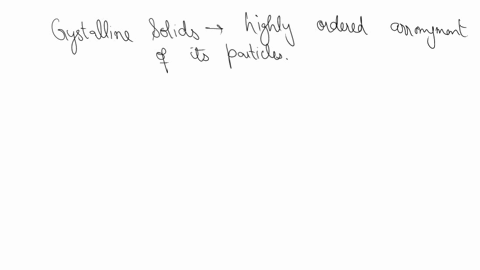 Crystalline Solids → highly ordered arrangment
of its particles.